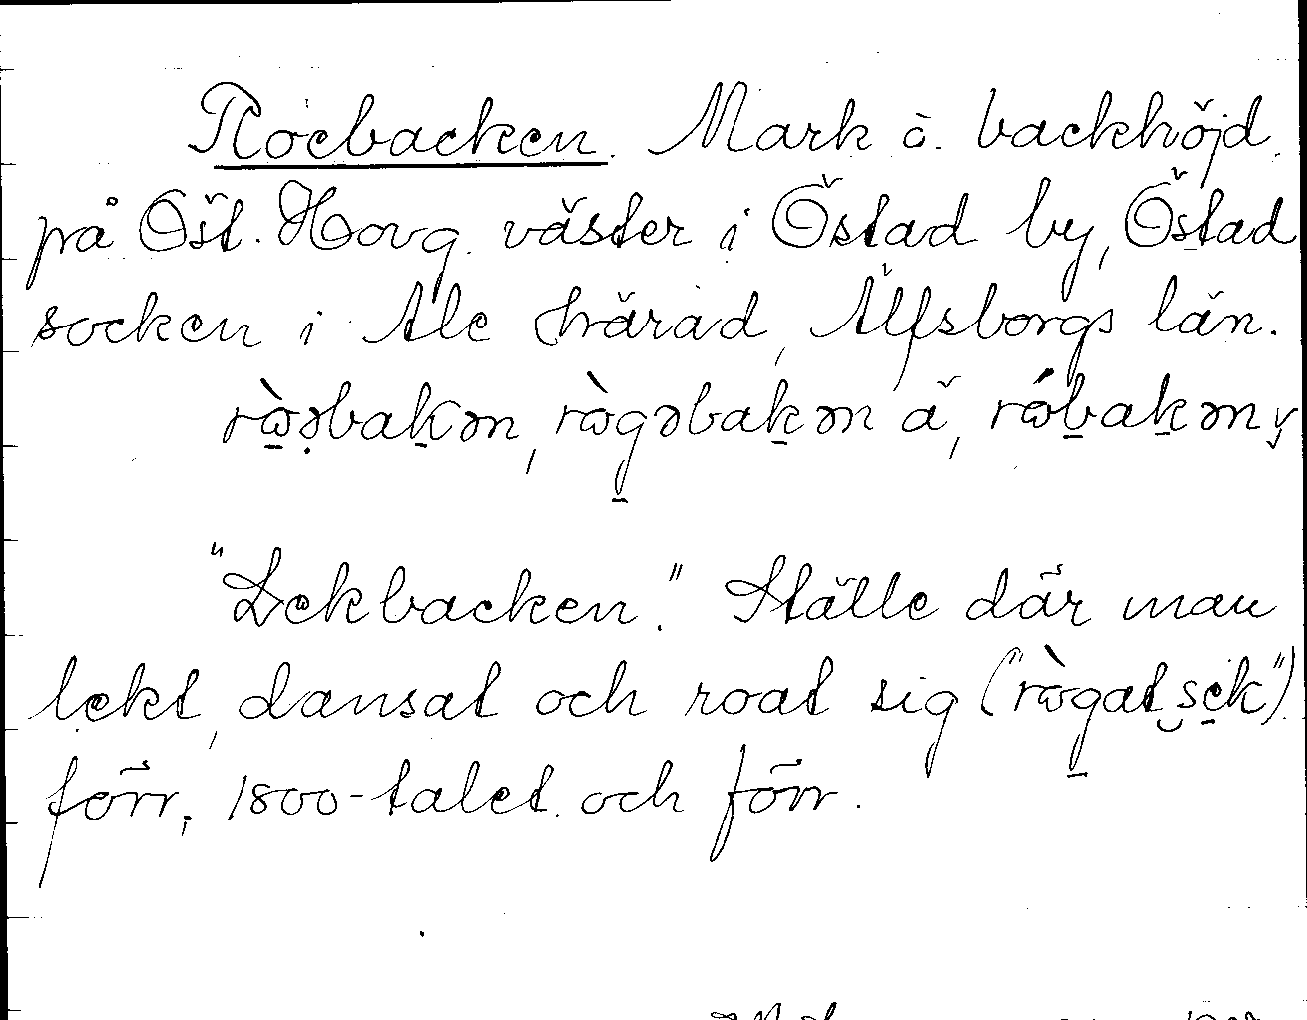 Roebacken. Mark o. backhöjd
på Öst. Hovg. väster i Östad by, Östad
socken i Ale härad, Älfsborgs län.
rὼəbakən, rὼgəbakən ä, rώbakən
"Lekbacken." Ställe där man
lekt, dansat och roat sig ("rὼgat sek")
förr, 1800-talet och förr.